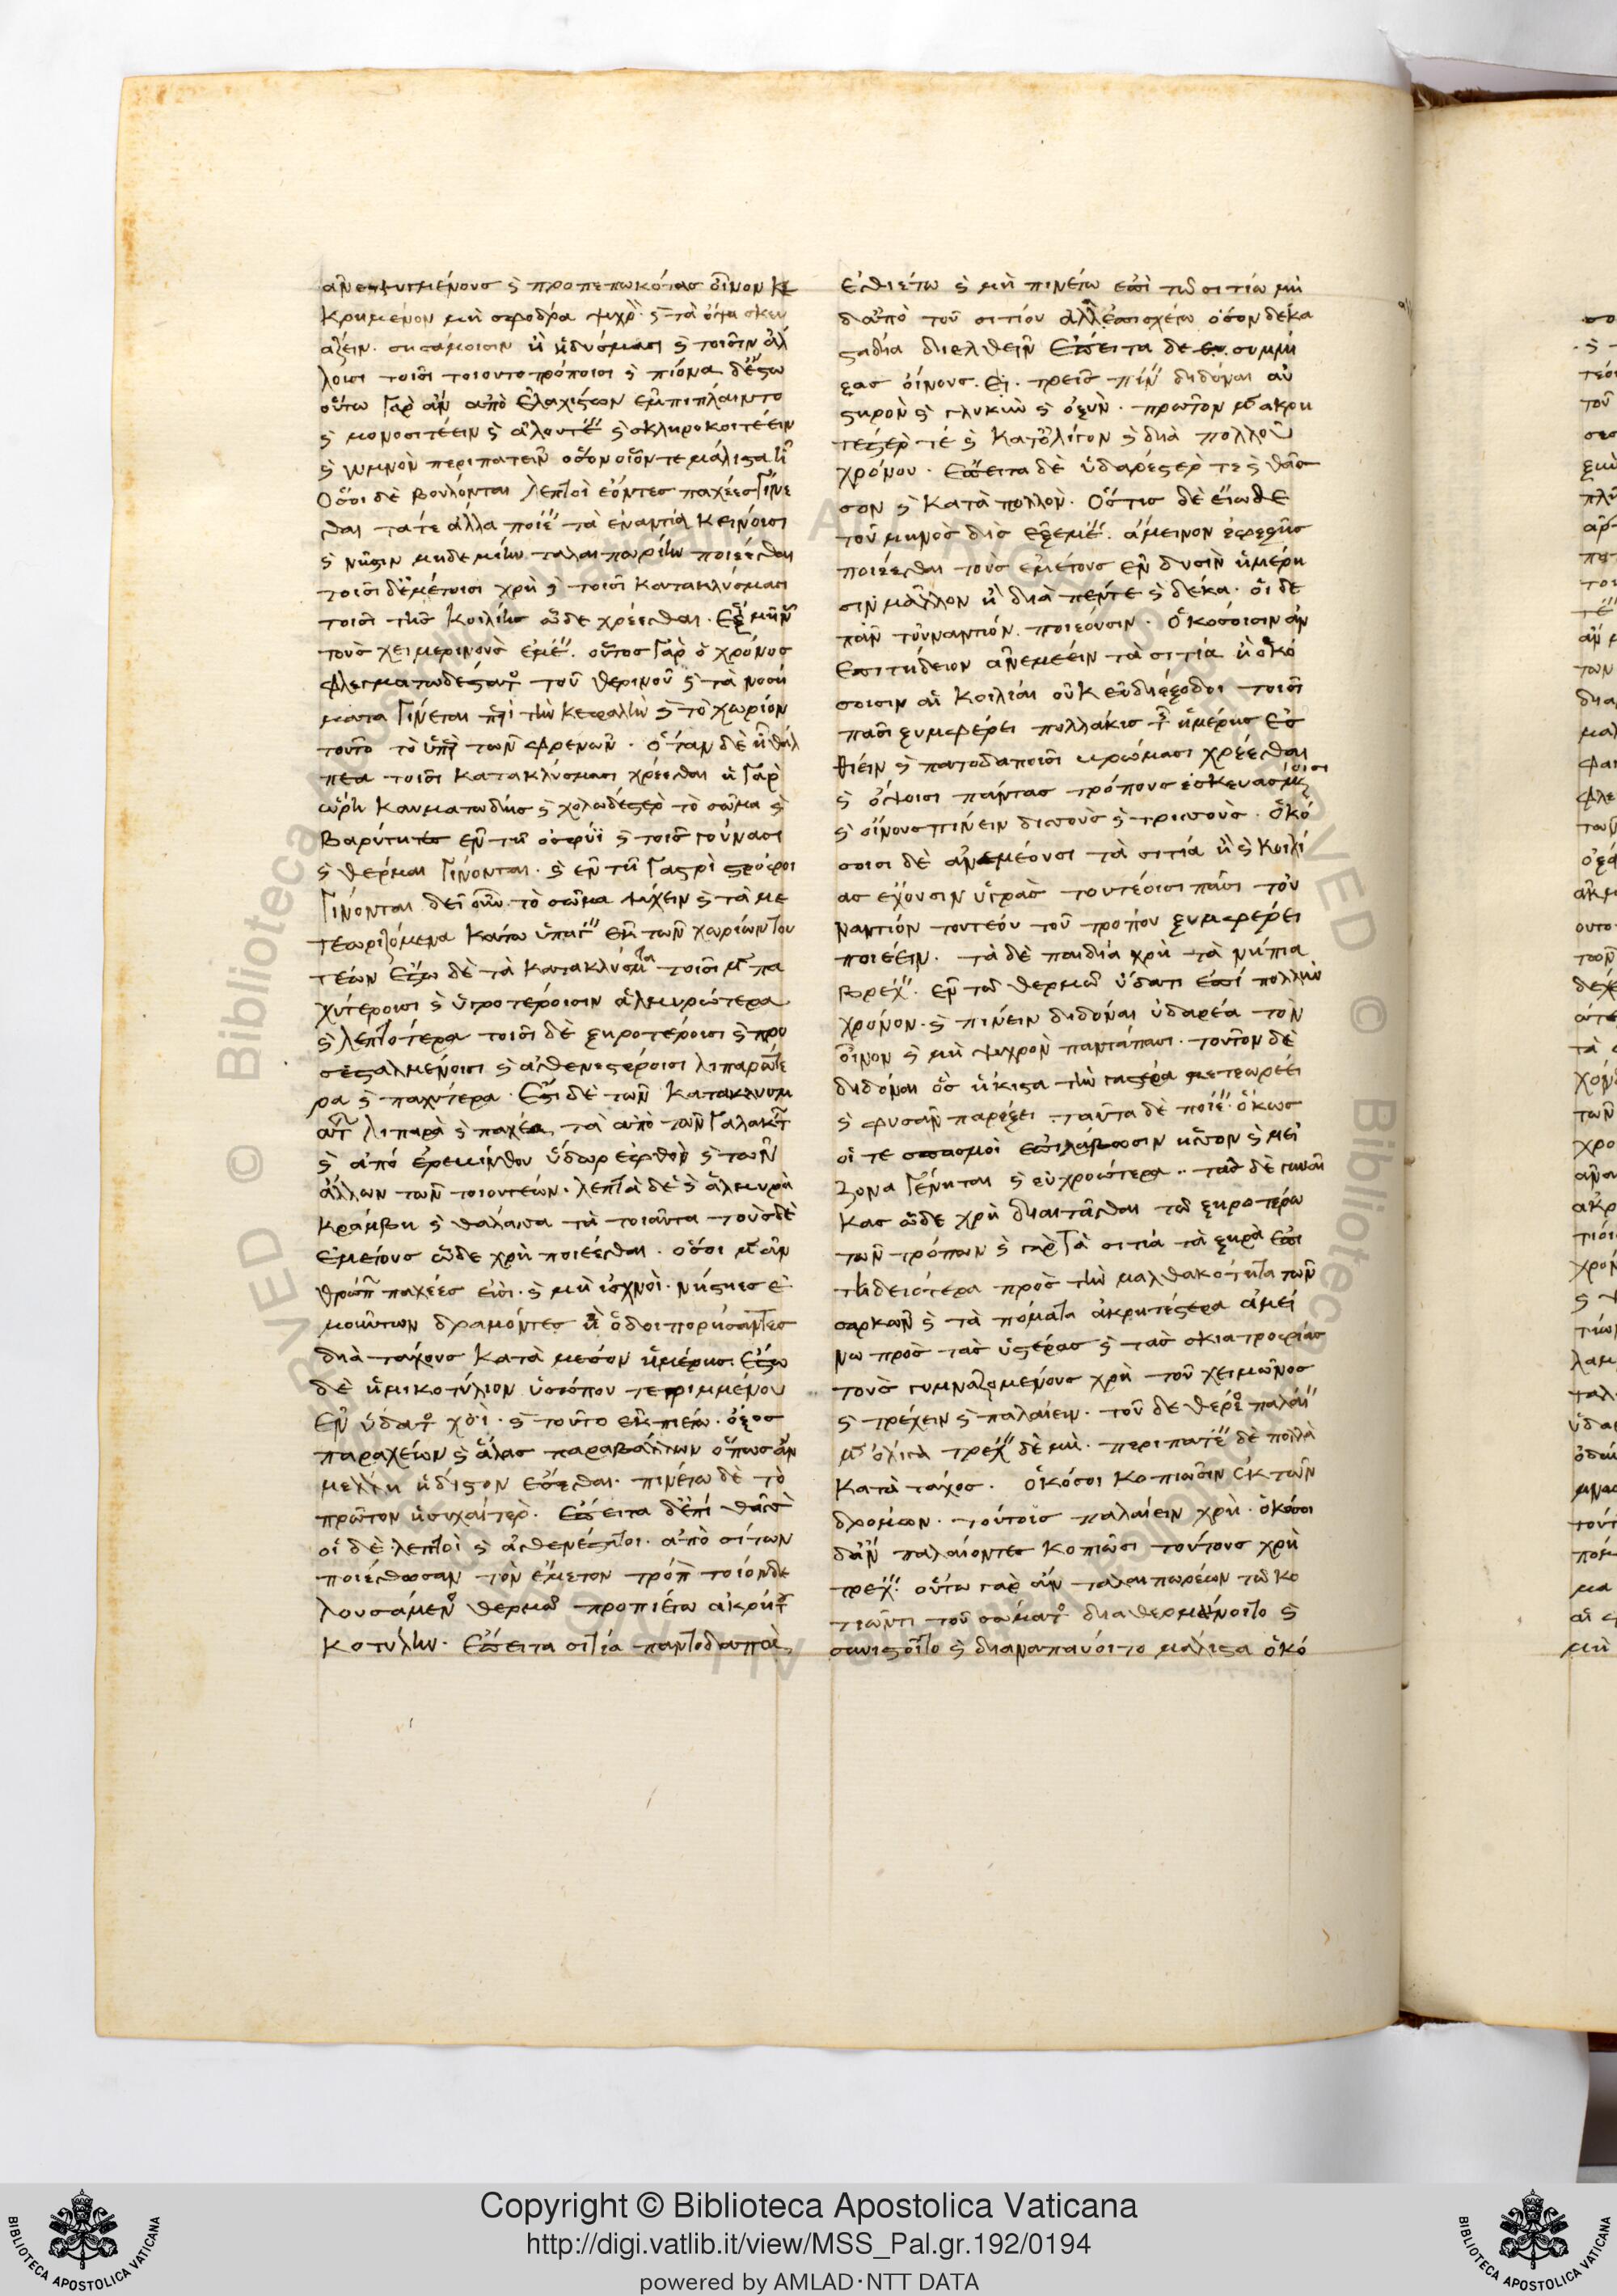 ἀνεψυγμένους καὶ προπεπωκότας οἶνον κε
κρημένον μὴ σφοδρα ψυχρὸ· καὶ τὰ ὄψα σκευ
άζειν. σησάμοισιν ἢ ἡδύσμασι καὶ τοῖσιν ἀλ
λοισι τοῖσι τοιουτοτρόποισι καὶ πίονα δἔστω
οὕτω γὰρ ἂν ἀπὸ ἐλαχίστων ἐμπιπλαιντο
καὶ μονοσιτέειν καὶ ἀλουτέ καὶ σκληροκοιτέειν
καὶ γυμνὸν περιπατεῖν ὅσον οἷόν τε μάλιστα
Ὅσοι δὲ βούλονται λεπτοὶ ἐόντες παχέες γίνε
σθαι τά τε ἄλλα ποιέ τὰ ἐναντία κείνοισι
καὶ νῆστιν μηδεμίην ταλαιπωρίην ποιέεσθαι
τοῖσι δἐμέτοισι χρὴ καὶ τοῖσι κατακλύσμασι
τοῖσι τῆς κοιλίης ὧδε χρέεσθαι. ἓξ μῆν
τοὺς χειμερινοὺς ἐμέ. οὗτος γὰρ ὁ χρόνος
φλεγματωδέστατο τοῦ θερινοῦ καὶ τὰ νοσή
ματα γίνεται περὶ τὴν κεφαλὴν καὶ τὸ χωρίον
τοῦτο τὸ ὑπὲρ τῶν φρενῶν. ὅταν δὲ ἦ θάλ
πεα τοῖσι κατακλύσμασι χρέεσθαι ἡ γὰρ
ὥρη καυματώδης καὶ χολωδέστερο τὸ σῶμα καὶ
βαρύτητες ἐν τῆ ὀσφύϊ καὶ τοῖς γούνασι
καὶ θέρμαι γίνονται. καὶ ἐν τῆ γαστρὶ στρόφοι
γίνονται δεῖ οὖν τὸ σῶμα ψύχειν καὶ τὰ με
τεωριζόμενα κάτω ὑπάγ ἐκ τῶν χωρίων του
τέων ἔστω δὲ τὰ κατακλύσματα τοῖσι μὲν πα
χυτέροισι καὶ ὑγροτέροισιν ἁλμυρώτερα
καὶ λεπτότερα τοῖσι δὲ ξηροτέροισι καὶ προ
σεσταλμένοισι καὶ ἀσθενεστέροισι λιπαρώτε
ρα καὶ παχύτερα. Ἔστι δὲ τῶν κατακλυσμ
ατ λιπαρὰ καὶ παχέα, τὰ ἀπὸ τῶν γαλακτ
καὶ ἀπὸ ἐρεμίνθου ὕδωρ ἑφθὸν καὶ τῶν
ἄλλων τῶν τοιουτέων. λεπτὰ δὲ καὶ ἁλμυρὰ
κράμβη καὶ θάλασσα τὰ τοιαῦτα τοὺς δὲ
ἐμέτους ὧδε χρὴ ποιέεσθαι. ὅσοι μὲν ἀν
θρώπ παχέες εἰσι. καὶ μὴ ἰσχνοὶ. νήστιες ἐ
μούντων δραμόντες ἢ ὁδοιπορήσαντες
διὰ τάχους κατὰ μέσον ἡμέρης. ἔστω
δὲ ἡμικοτύλιον ὑσσόπου τετριμμένου
ἐν ὕδατο χοΐ. καὶ τοῦτο ἐκπιέτω. ὄξος
παραχέων καὶ ἅλας παραβάλλων ὅπως ἂν
μέλλη ἥδιστον ἔσεσθαι. πινέτω δὲ τὸ
πρῶτον ἡσυχαίτερο. ἔπειτα δἐπὶ θᾶσσο
οἱ δὲ λεπτοὶ καὶ ἀσθενέστεροι. ἀπὸ σίτων
ποιέσθωσαν τὸν ἔμετον τρόπ τοιόνδε
λουσάμενο θερμῶ προπιέτω ἀκρήτ
κοτύλην. ἔπειτα σιτία παντοδαπὰ
ἐσθιέτω καὶ μὴ πινέτω ἐπὶ τῶ σιτίω μη
δἀπὸ τοῦ σιτίου ἀλλ ἐπισχέτω ὅσον δέκα
στάδια διελθεῖν ἔπειτα δὲ συμμί
ξας οἴνους. τρεῖς πίν διδόναι αὐ
στηρὸν καὶ γλυκὺν καὶ ὀξὺν. πρῶτον μὲν ἀκρη
τέστερο τὲ καὶ κατολίγον καὶ διὰ πολλοῦ
χρόνου. ἔπειτα δὲ ὑδαρέστερο τε καὶ θᾶσ
σον καὶ κατὰ πολλὸν. Ὅστις δὲ εἴωθε
τοῦ μηνὸς δὶς ἐξεμέ. ἄμεινον ἐφεξῆς
ποιέεσθαι τοὺς ἐμέτους ἐν δυσὶν ἡμέρη
σιν μᾶλλον ἢ διὰ πέντε καὶ δέκα. οἱ δὲ
πᾶν τοὐναντίον ποιέουσιν. Ὁκόσοισιν ἂν
ἐπιτήδειον ἀνεμέειν τὰ σιτία ἢ ὁκό
σοισιν αἱ κοιλίαι οὐκ εὐδιέξοδοι τοῖσι
πᾶσι ξυμφέρει πολλάκις τ ἡμέρης ἐσ
θιέιν καὶ παντοδαποῖσι βρώμασι χρέεσθαι
καὶ ὄψοισι πάντας τρόπους ἐσκευασμένοισι
καὶ οἴνους πίνειν δισσοὺς καὶ τρισσοὺς. Ὁκό
σοισι δὲ ἀνεμέουσι τὰ σιτία ἢ καὶ κοιλί
ας ἔχουσιν ὑγρὰς τουτέοισι πᾶσι τοὐ
ναντίον τουτέου τοῦ τρόπου ξυμφέρει
ποιέειν. τὰ δὲ παιδία χρὴ τὰ νήπια
βρέχ. ἐν τῶ θερμῶ ὕδατι ἐπὶ πολλὺν
χρόνον. καὶ πίνειν διδόναι ὑδαρέα τὸν
οἶνον καὶ μὴ ψυχρὸν παντάπασι. τοῦτον δὲ
διδόναι ὃς ἥκιστα τὴν γαστέρα μετεωριεῖ
καὶ φυσᾶν παρέξει. ταῦτα δὲ ποιέ. ὅκως
οἵ τε σπασμοὶ ἐπιλάβωσιν ἧσσον καὶ μεί
ζονα γένηται καὶ εὐχροώτερα.. τὰς δὲ γυναῖ
κας ὧδε χρὴ διαιτᾶσθαι τῶ ξηροτέρω
τῶν τρόπων καὶ γὰρ τὰ σιτία τὰ ξηρὰ ἐπι
τηδειότερα πρὸς τὴν μαλθακότητα τῶν
σαρκῶν καὶ τὰ πόματα ἀκρητέστερα ἀμεί
νω πρὸς τὰς ὑστέρας καὶ τὰς σκιατροφίας
τοὺς γυμναζομένους χρὴ τοῦ χειμῶνος
καὶ τρέχειν καὶ παλαίειν. τοῦ δὲ θέρεο παλαί
μὲν ὀλίγα τρέχ δὲ μὴ. περιπατέ δὲ πολλὰ
κατὰ τάχος. Ὁκόσοι κοπιῶσιν ἐκ τῶν
δρόμων. τούτοις παλαίειν χρὴ. ὁκόσοι
δἂν παλαίοντες κοπιῶσι τούτους χρὴ
τρέχ. οὕτω γὰρ ἂν ταλαιπωρέων τῶ κο
πιῶντι τοῦ σώματο διαθερμαίνοιτο καὶ
συνιστοῖτο καὶ διαναπαύοιτο μάλιστα ὁκό
Copyright © Biblioteca Apostolica Vaticana
http://digi.vatlib.it/view/MSS_Pal.gr.192/0194
powered by AMLAD·NTT DATA